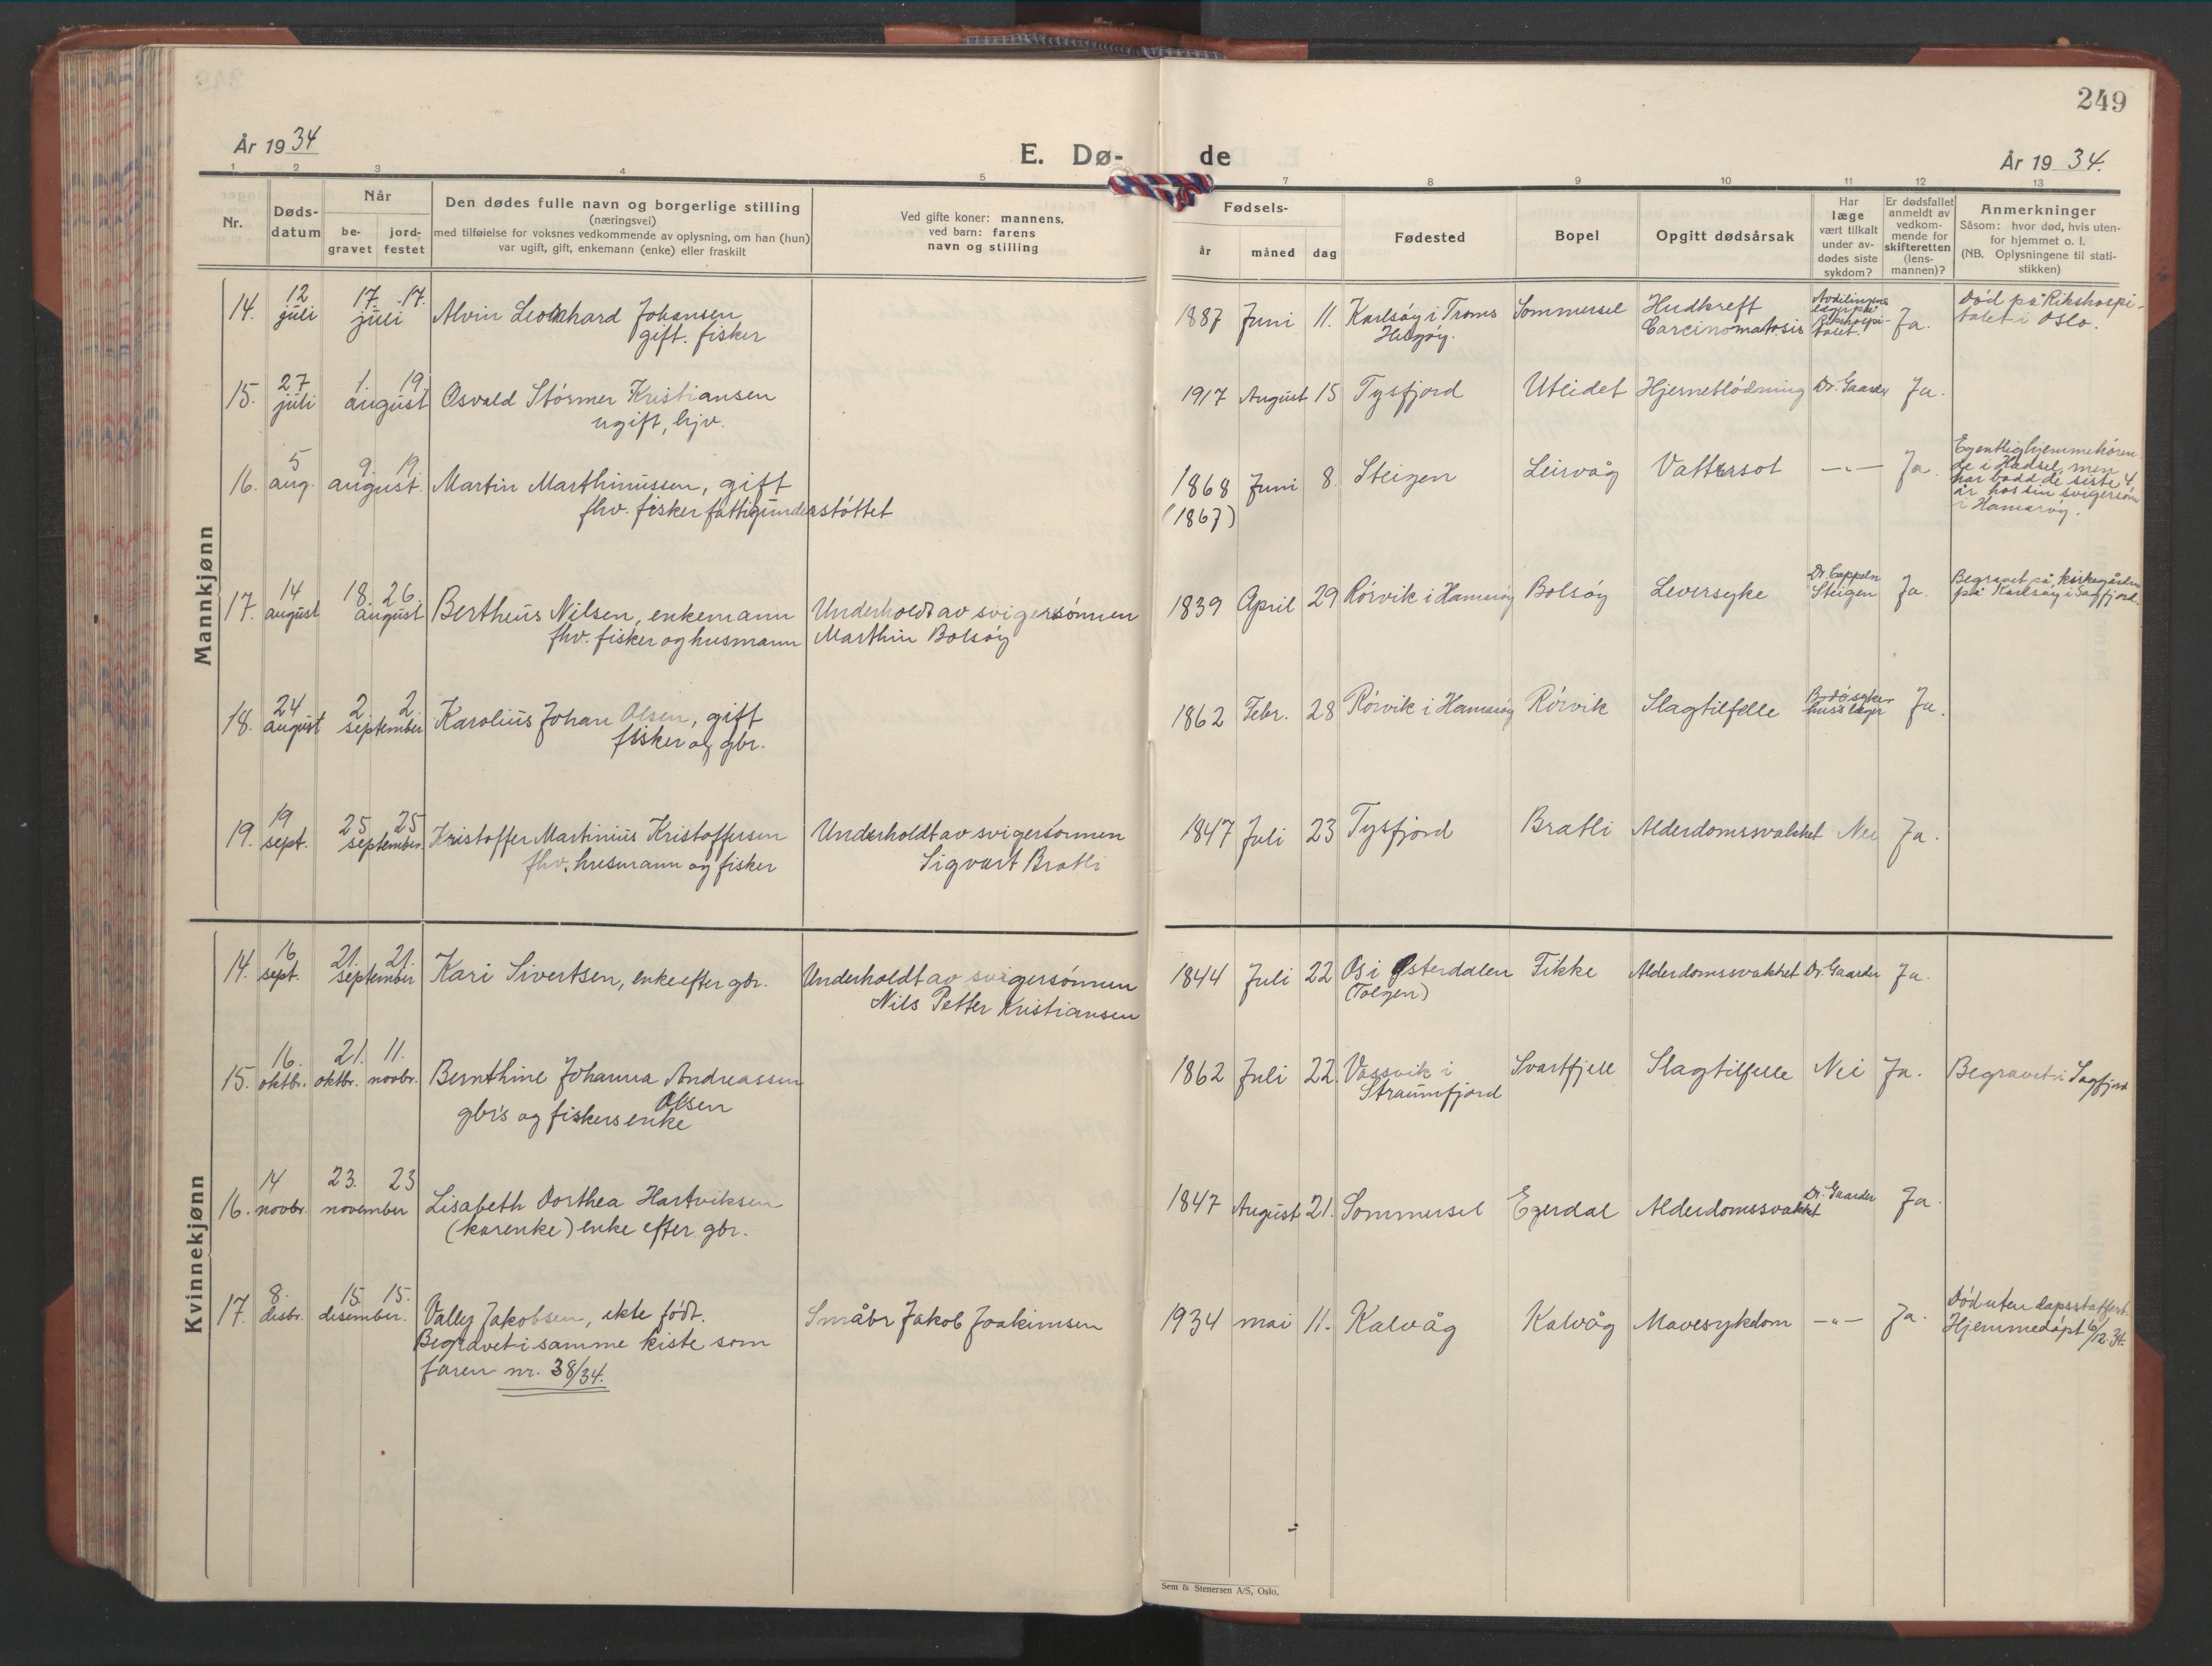 249
År 1934
E. Dø-
de
År 1934.
1 2 3 4 5 7 8 9 10 11 12 13
Nr.
Døds-
datum
Når
be-
gravet
jord-
festet
Den dødes fulle navn og borgerlige stilling
(næringsvei)
med tilføielse for voksnes vedkommende av oplysning, om han (hun)
var ugift, gift, enkemann (enke) eller fraskilt
Ved gifte koner: mannens,
ved barn: farens
navn og stilling
Fødsels-
år måned dag
Fødested
Bopel
Opgitt dødsårsak
Har
læge
vært tilkalt
under av-
dødes siste
sykdom?
Er dødsfallet
anmeldt av
vedkom-
mende for
skifteretten
(lens-
mannen)?
Anmerkninger
Såsom: hvor død, hvis uten-
for hjemmet o. l.
(NB. Oplysningene til stati-
stikken)
Mankjønn
14. 12 juli 17. 17. juli Alvin Leonhard Johansen
gift. fisker
1887 Juni 11. Karlsøy i Troms Sommersel Hudkreft
Helgøy. Carcinomatosis
Avdelingens
læger på
Rikshospi-
talet.
Ja.
Død på Rikshospi-
talet i Oslo.
15. 27 juli 1. 19. august Osvald Størmer Kristiansen
ugift, hjv.
1917 August 15 Tysfjord Utlidet Hjerneblødning Dr. Gaarder Ja.
16. 5 aug. 9. 19. august. Martin Marthinussen, gift
fhv. fisker fattigunderstøttet
1868 Juni 8. Steigen Leirvåg Vattersot —„— Ja.
(1867)
Egentlig hjemmehøren-
de i Hadsel, men
har bodd de siste 4
år hos sin svigersønn
i Hamarøy.
17. 14 august 18. 26. august Bertheus Nilsen, enkemann
fhv. fisker og husmann
Underholdt av svigersønnen
Marthin Bolsøy
1839 April 29 Rørvik i Hamarøy Bolsøy Leversyke
Dr. Cappeln
Steigen
Ja.
Begravet på kirkegården
på Karlsøy i Sagfjord.
18. 24 august 2. 2. september Karolius Johan Olsen, gift
fisker og gbr.
1862 Febr. 28 Rørvik i Hamarøy Rørvik Slagtilfelle
Bodø syke-
huss læger
Ja.
19. 19 sept. 25 25 september Kristoffer Martinius Kristoffersen
fhv. husmann og fisker
Underholdt av svigersønnen
Sigvart Bratli
1847 Juli 23 Tysfjord Bratli Alderdomssvakhet Nei Ja.
Kvinnekjønn
14. 16 sept. 21. 21. september Kari Sivertsen, enke efter gbr.
Underholdt av svigersønnen
Nils Petter Kristiansen
1844 Juli 22 Os i Østerdalen Fikke Alderdomssvakhet Dr. Gaarder Ja.
(Tolgen)
15. 16. oktbr. 21. oktbr. 11. novbr. Bernthine Johanna Andreassen
Olsen
gbr's og fiskers enke
1862 Juli 22. Vassvik i Svartfjell Slagtilfelle Nei Ja. Begravet i Sagfjord
Straumfjord
16. 14 novbr. 23. 23 november Lisabeth Dorthea Hartviksen
(kårenke) enke efter gbr.
1847 August 21. Sommersel Egerdal Alderdomssvakhet Dr. Gaarder Ja.
17. 8. desbr. 15. 15. desember. Vally Jakobsen, ekte født.
Begravet i samme kiste som
faren nr. 38/34.
Småbr Jakob Joakimsen
1934 mai 11. Kalvåg Kalvåg Mavesykdom —„— Ja.
Død uten dapsattest.
Hjemmedøpt 6/12 34.
Sem & Stenersen A/S, Oslo.